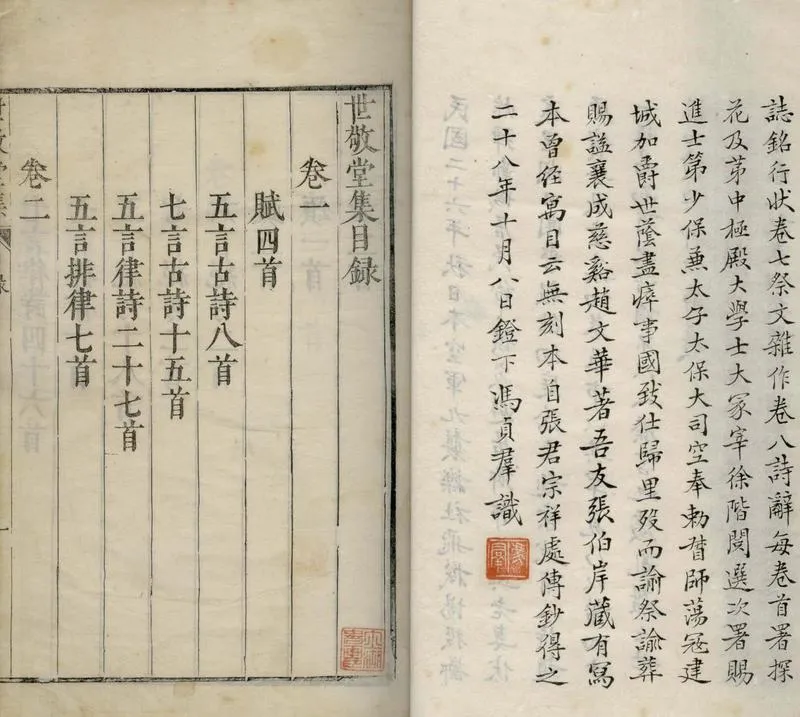 誌銘行狀卷七祭文雜作卷八詩辭每卷首署探
花及苐中極殿大學士大冢宰徐階閱選次署賜
進士第少保兼太子太保大司空奉勅督師蕩冦建
城加爵世蔭盡瘁事國致仕歸里歿而諭祭諭葬
賜謚襄成慈谿趙文華著吾友張伯岸藏有寫
本曾經寓目云無刻本自張君宗祥處傳鈔得之
二十八年十月八日鐙下馮貞羣識
世敬堂集目録
卷一
賦四首
五言古詩八首
七言古詩十五首
五言律詩二十七首
五言排律七首
卷二